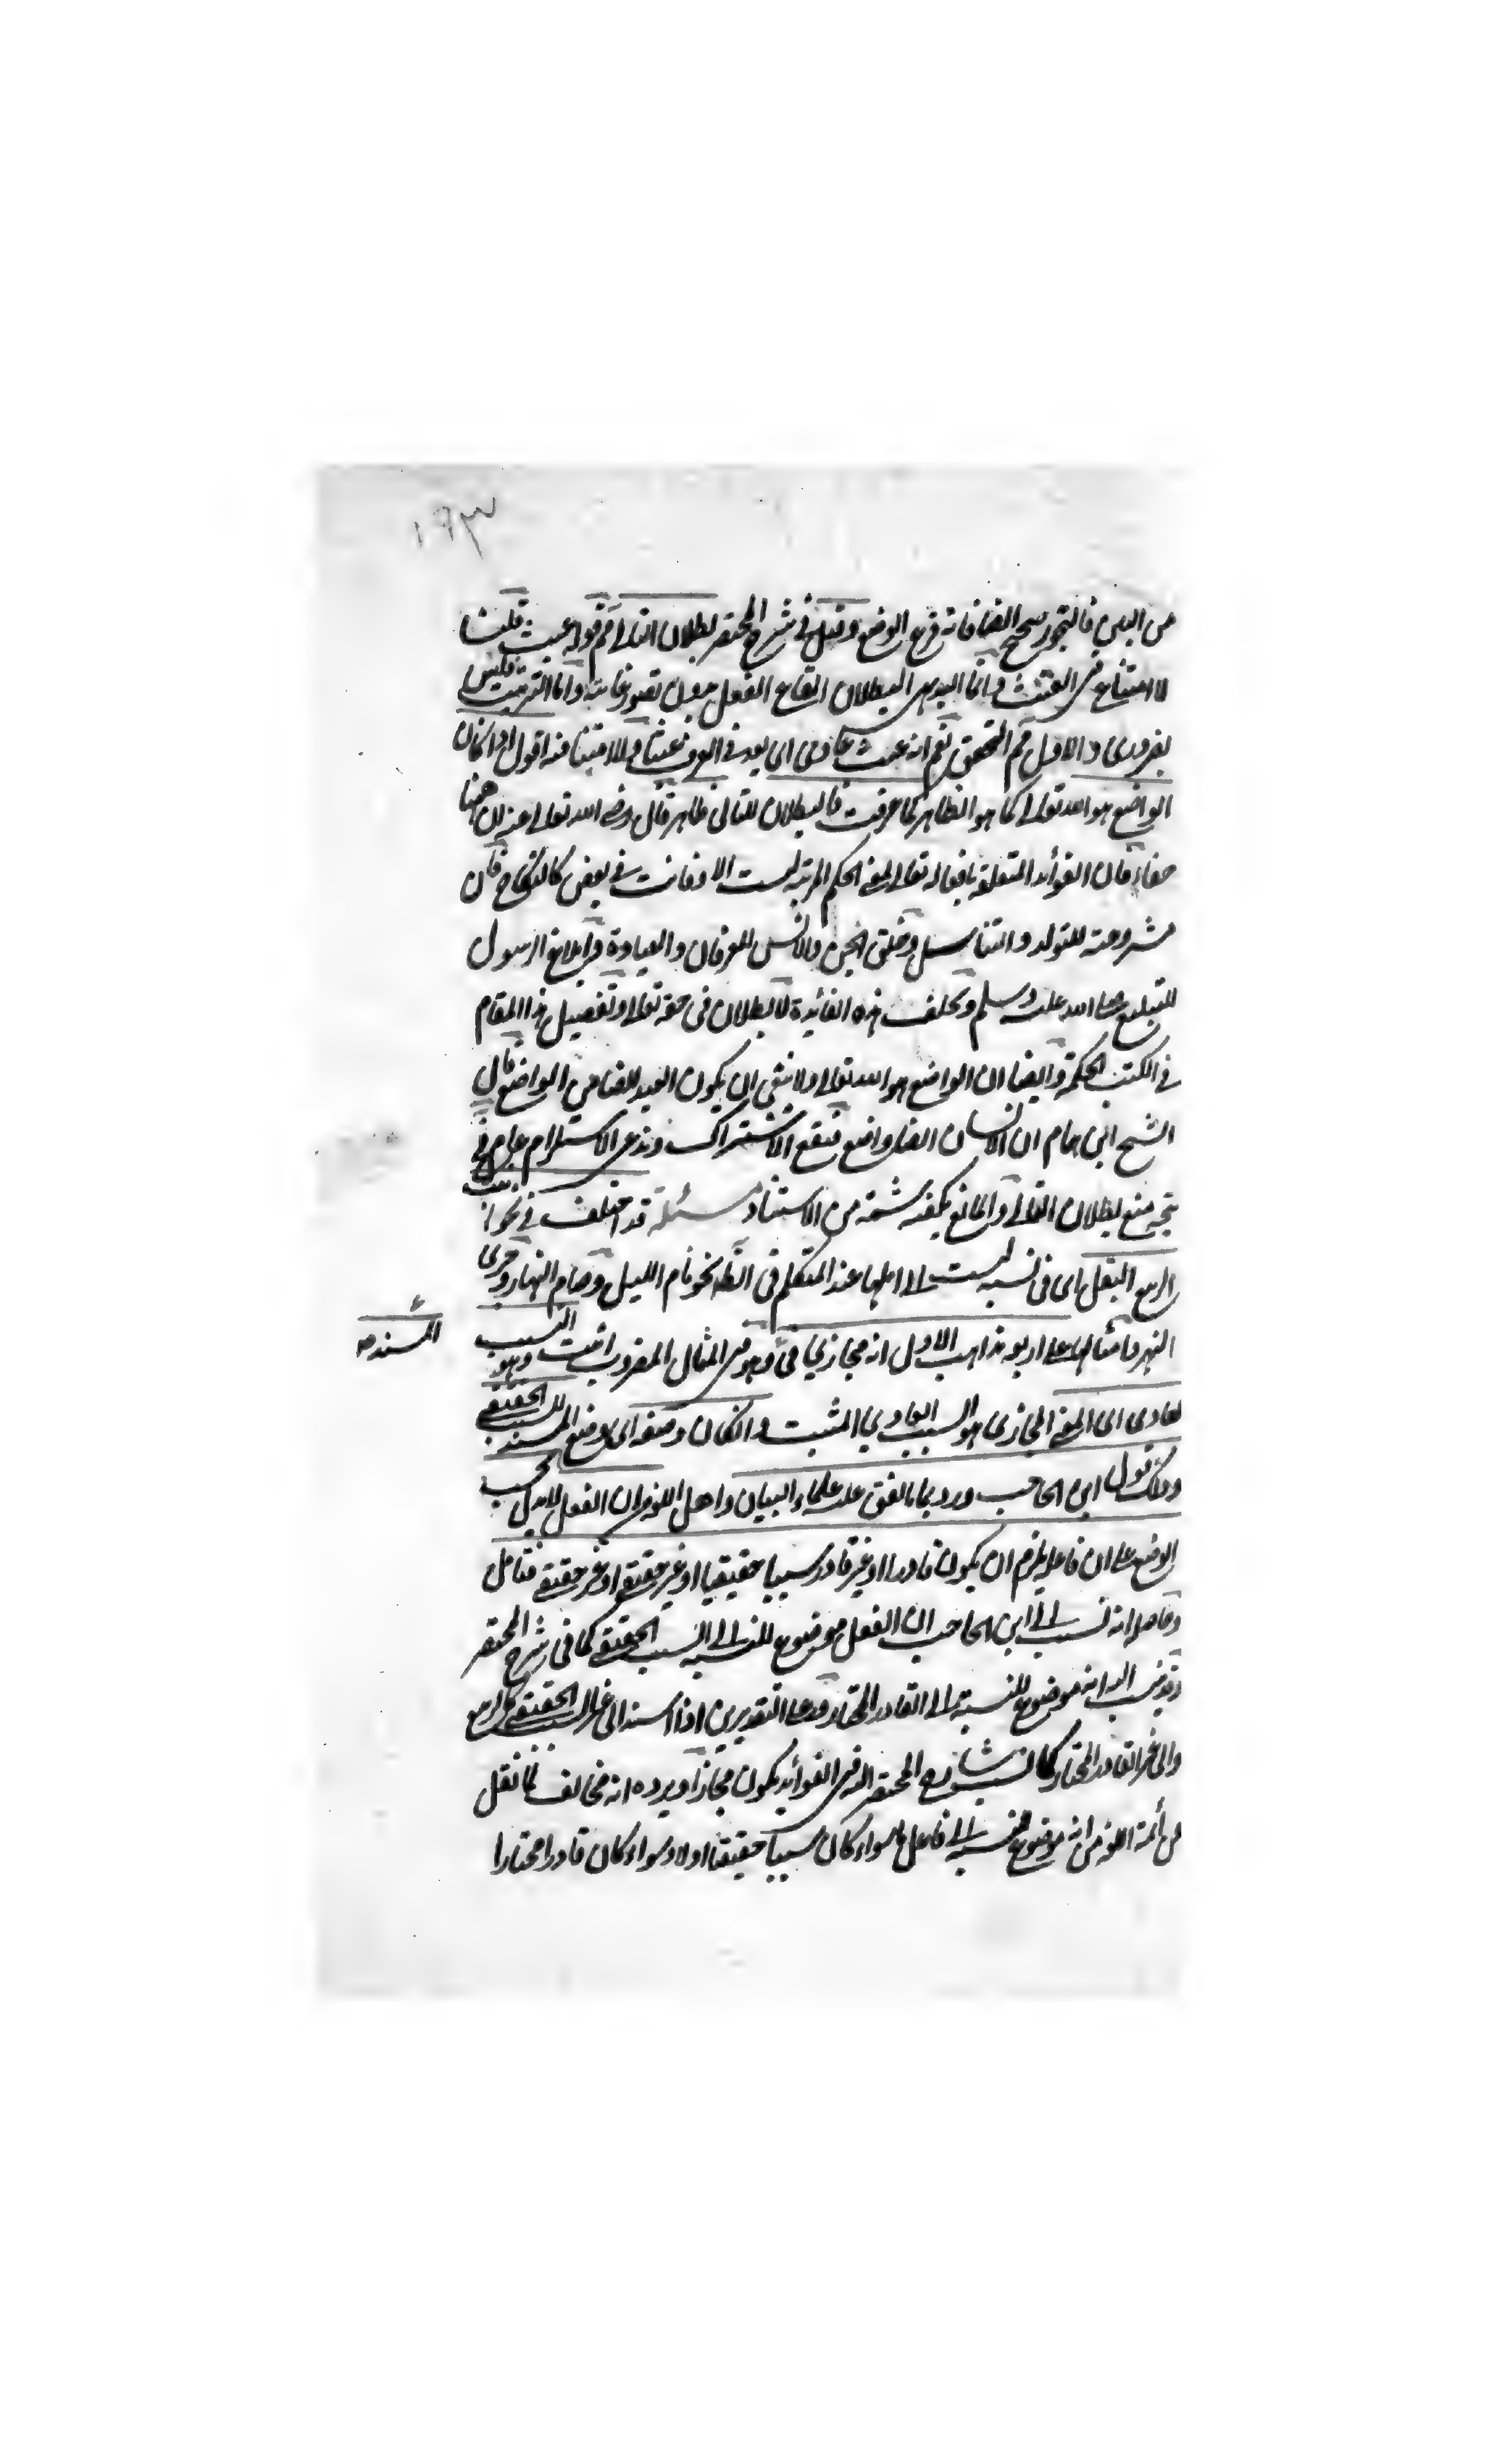 ١٩٣
من البين فالتجوز صحيح ايضا فانه فرع الوضع وقيل في شرح المختصر بطلان التالي مم قوله عبث قلنا
لا امتناع في العبث وانما البديهي البطلان ايقاع الفعل بدون تصور غايته واما الترتيب فليس
بضروري والاول مم التحقق نعم انه عبث عادي اي يعد في العرف عبثا ولا امتناع فيه اقول اذا كان
الواضع هو الله تعالى كما هو الظاهر كما عرفت فالبطلان للتالي ظاهر قال رضي الله تعالى عنه ان ههنا
خفاء فان الفوائد المتعلقة بافعاله تعالى لمعنى الحكم المرتبة ليست الا وفاتت في بعض كالنكاح فان
مشروعيته للتولد والتناسل وخلق الجن والانس للعرفان والعبادة وابلاغ الرسول
للتبليغ صلى الله عليه وسلم وتخلف هذه الفائدة لا بطلان في حقه تعالى وتفصيل هذا المقام
في الكتب الحكمية وايضا ان الواضع هو الله تعالى ولا ينفي ان يكون العبد ايضا من الواضع قال
الشيخ ابن همام ان الانسان ايضا واضع فيقع الاشتراك وندعي الاستلزام عام فح
يتجه منع بطلان التالي والمانع يكفيه شمة من الاستناد مسئلة قد اختلف في نحو انبت
الربيع البقل اي في نسبة ليست الى اهلها عند المتكلم في الظ نحو نام الليل وصام النهار وجرى
النهر وامثالها على اربعة مذاهب الاول انه مجاز في وهو في المثال المضروب انبت وهو السبب
المسند ص
العادي اي المعنى المجازي هو السبب العادي المثبت وان كان وضعه اي وضع المسند للسبب الحقيقي
وذلك قول ابن الحاجب ورد بما اتفق عليه علماء البيان واهل اللغة ان الفعل لا يدل بحسب
الوضع على ان فاعله يلزم ان يكون قادرا او غير قادر سببا حقيقيا او غير حقيقي او غير حقيقي فتامل
وحاصله انه نسب الى ابن الحاجب ان الفعل موضوع للنسبة الى السبب الحقيقي كما في شرح المختصر
وقد نسب اليه انه موضوع للنسبة الى القادر المختار وعلى التقديرين اذا اسند الى غير السبب الحقيقي كالربيع
والى غير القادر المختار كما نسب شارح المختصر اليه في الفوائد يكون مجازا ويرده انه مخالف لما نقل
من أئمة اللغة من انه موضوع للنسبة الى فاعل ما سواء كان سببا حقيقيا اولا وسواء كان قادرا مختارا